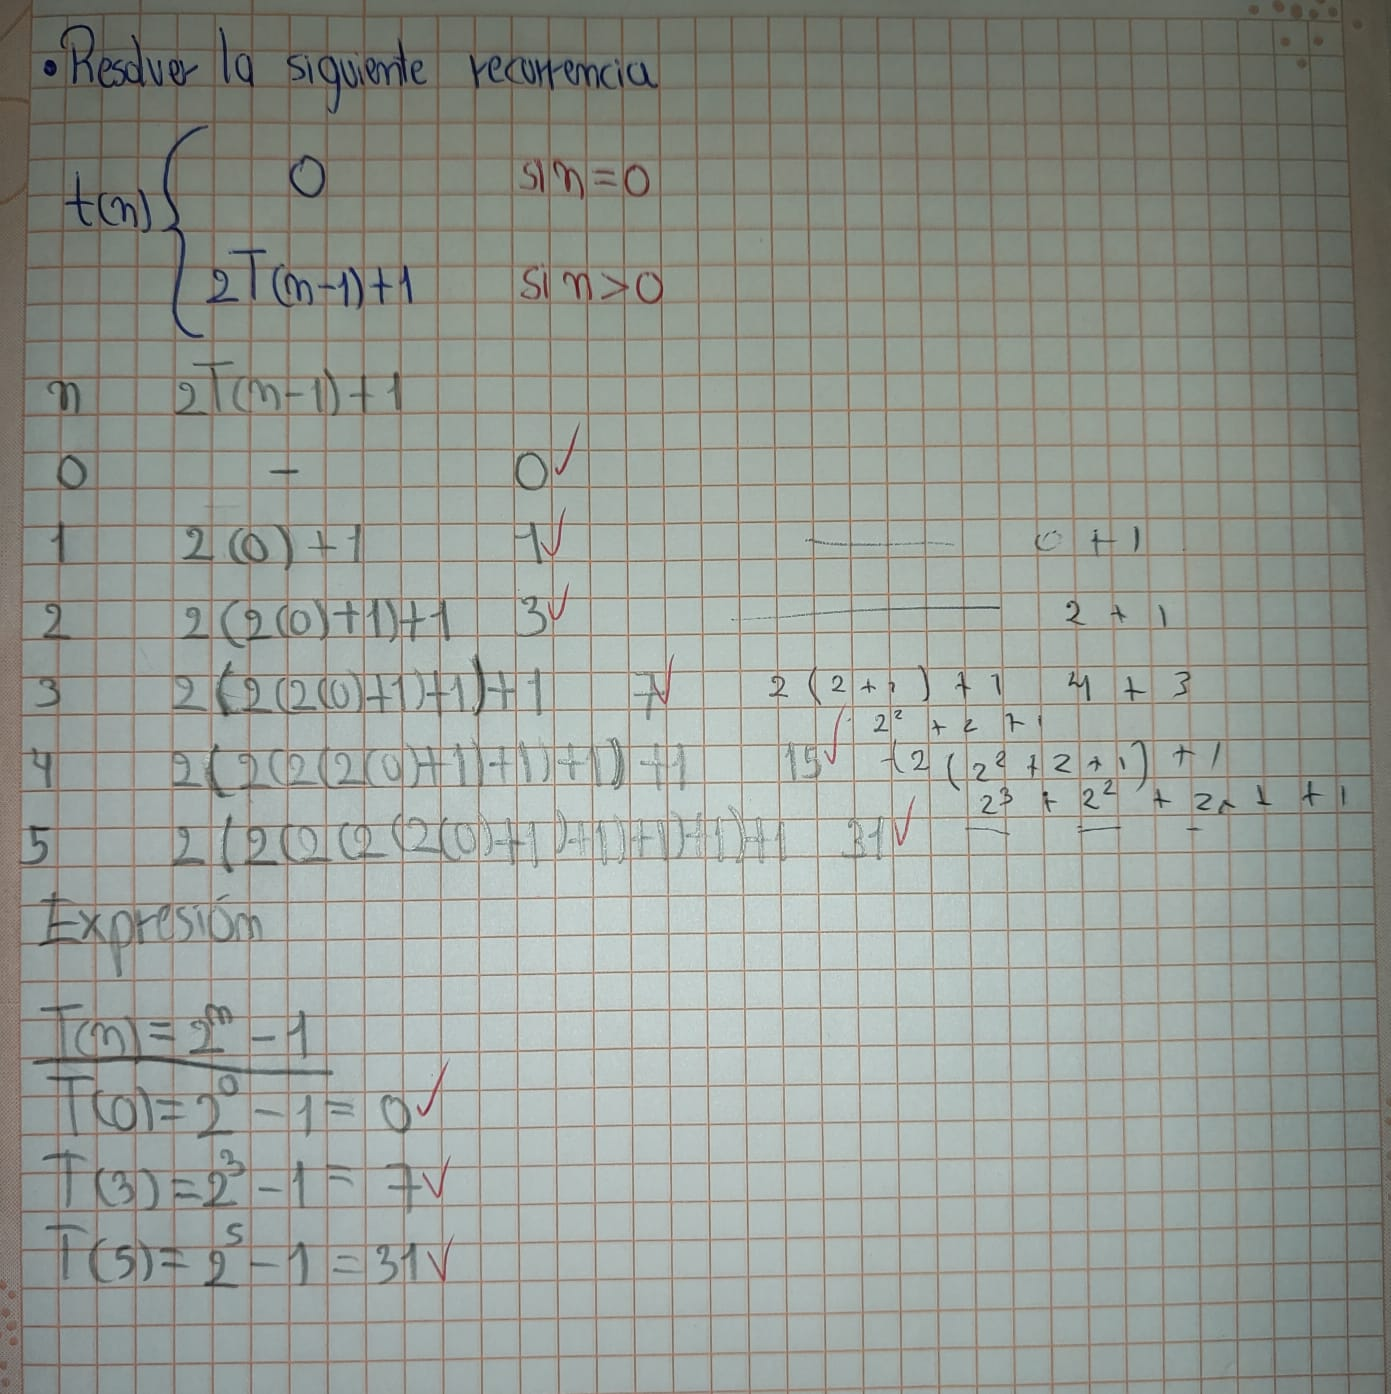 • Resolver la siguiente recurrencia
t(n) { 0 si n=0
2T(n-1)+1 si n>0
n 2T(n-1)+1
0 - 0✓
1 2(0)+1 1✓ 0 + 1
2 2(2(0)+1)+1 3✓ 2 + 1
3 2(2(2(0)+1)+1)+1 7✓ 2(2+1)+1 4 + 3
2² + 2 + 1
4 2(2(2(2(0)+1)+1)+1)+1 15✓ (2(2²+2+1)+1
2³ + 2² + 2 + 1
5 2(2(2(2(2(0)+1)+1)+1)+1)+1 31✓
Expresión
T(n)=2ⁿ-1
T(0)=2⁰-1=0✓
T(3)=2³-1=7✓
T(5)=2⁵-1=31✓